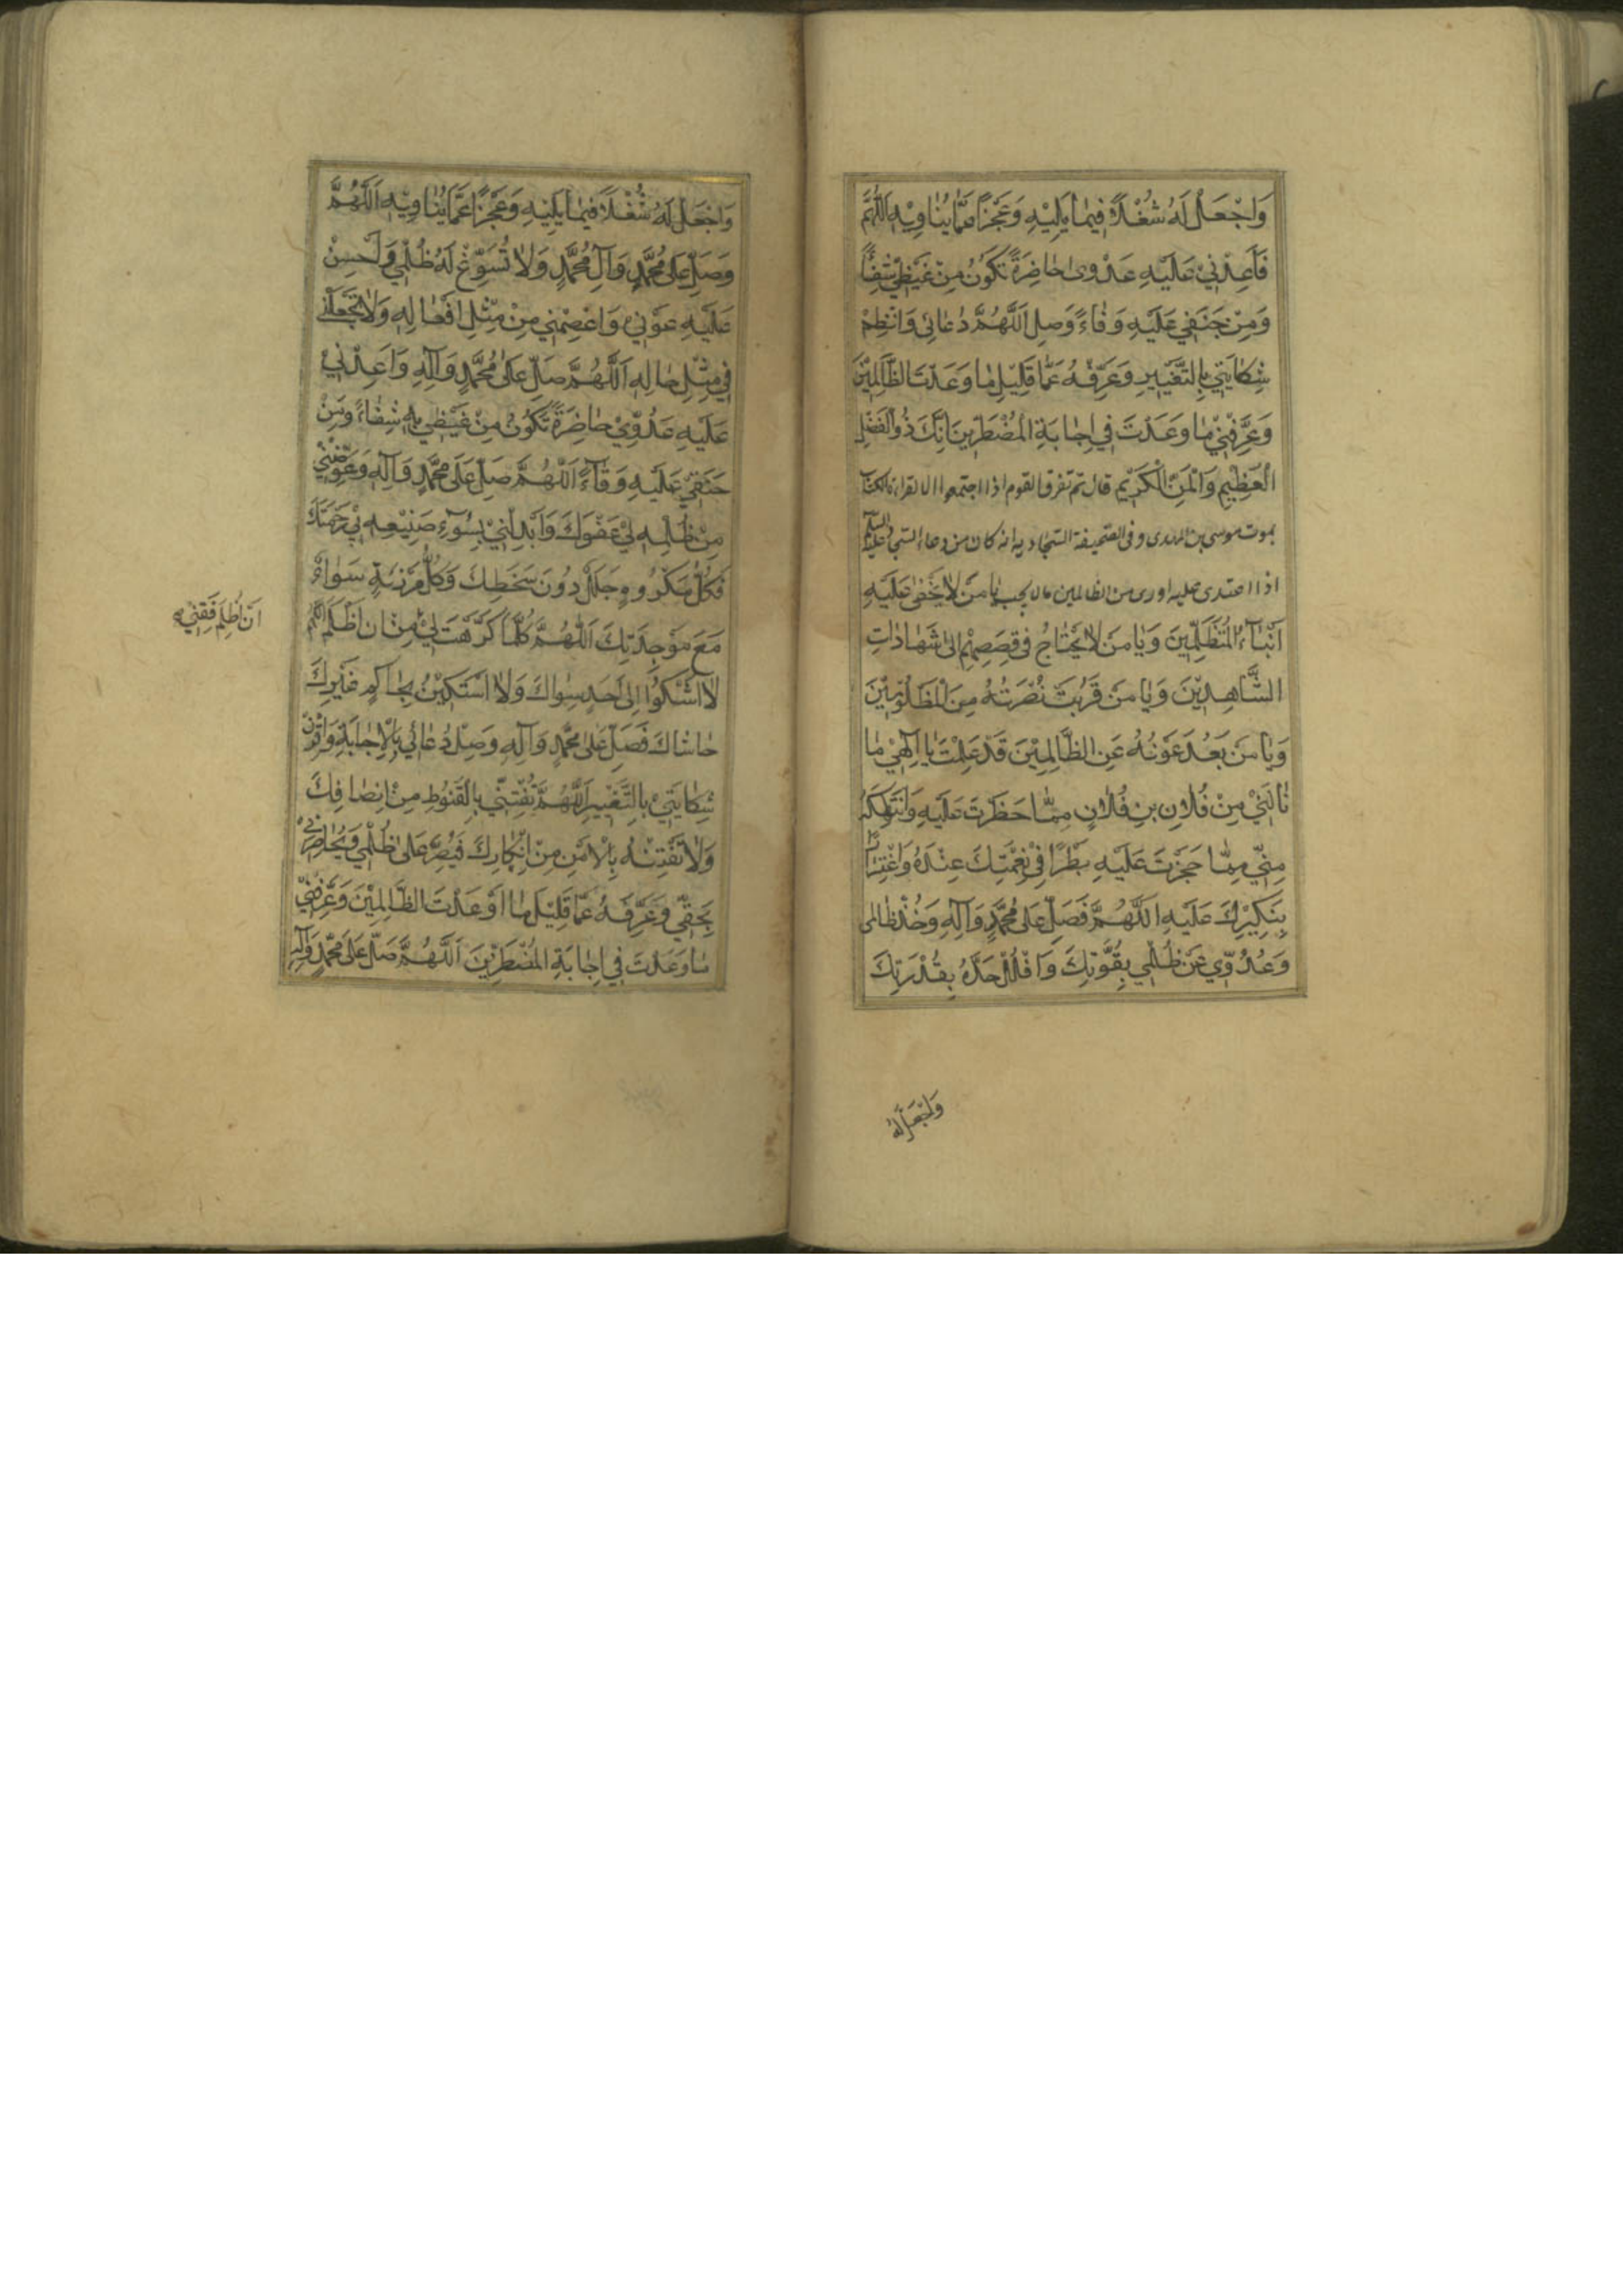 وَاجْعَلْ لَهُ شُغْلًا فِيمَا يَلِيْهِ وَعَجْزًا عَمَّا يُنَاوِيْهِ اَللّٰهُمَّ
فَاَعِدْنِيْ عَلَيْهِ عَدْوٰى حَاضِرَةً تَكُونُ مِنْ غَيْظِيْ شِفَاءً
وَمِنْ حَنَقِي عَلَيْهِ وَفَاءً وَصِلِ اَللّٰهُمَّ دُعَائِي وَانْظِمْ
شِكَايَتِي بِالتَّغْيِيرِ وَعَرِّفْهُ عَمَّا قَلِيْلٍ مَا وَعَدْتَ الظَّالِمِيْنَ
وَعَرِّفْنِيْ مَا وَعَدْتَ فِي اِجَابَةِ الْمُضْطَرِّينَ اِنَّكَ ذُوالْفَضْلِ
الْعَظِيْمِ وَالْمَنِّ الْكَرِيْمِ قال ثم تفرق القوم اذا اجتمعوا الا لقراءة الكتاب
بموت موسى بن المهدى وفى الصحيفة السجادية انه كان من دعاء السجاد عليه السلم
اذا اعتدى عليه او رى من الظالمين مالا يحب يَا مَنْ لَا يَخْفٰى عَلَيْهِ
اَنْبَآءُ الْمُتَظَلِّمِيْنَ وَيَا مَنْ لَا يَحْتَاجُ فِى قِصَصِهِمْ اِلٰى شَهَادَاتِ
الشَّاهِدِيْنَ وَيَا مَنْ قَرُبَتْ نُصْرَتُهُ مِنَ الْمَظْلُوْمِيْنَ
وَيَا مَنْ بَعُدَ عَوْنُهُ عَنِ الظَّالِمِيْنَ قَدْ عَلِمْتَ يَا اِلٰهِيْ مَا
نَالَنِيْ مِنْ فُلَانِ بنِ فُلَانٍ مِمَّا حَظَرْتَ عَلَيْهِ وَانْتَهَكَهُ
مِنِّي مِمَّا حَجَزْتَ عَلَيْهِ بَطَرًا فِيْ نِعْمَتِكَ عِنْدَهُ وَاغْتِرَارًا
بِنَكِيْرِكَ عَلَيْهِ اَللّٰهُمَّ فَصَلِّ عَلٰى مُحَمَّدٍ وَآلِهِ وَخُذْ ظَالِمِى
وَعَدُوِّي عَنْ ظُلْمِي بِقُوَّتِكَ وَافْلُلْ حَدَّهُ بِقُدْرَتِكَ
وَاجْعَلْ لَهُ
وَاجْعَلْ لَهُ شُغْلًا فِيْمَا يَلِيْهِ وَعَجْزًا عَمَّا يُنَاوِيْهِ اَللّٰهُمَّ
وَصَلِّ عَلٰى مُحَمَّدٍ وَآلِ مُحَمَّدٍ وَلَا تُسَوِّغْ لَهُ ظُلْمِي وَاَحْسِنْ
عَلَيْهِ عَوْنِيْ وَاعْصِمْنِي مِنْ مِثْلِ اَفْعَالِهِ وَلَا تَجْعَلْنِي
فِي مِثْلِ حَالِهِ اَللّٰهُمَّ صَلِّ عَلٰى مُحَمَّدٍ وَآلِهِ وَاَعِدْنِي
عَلَيْهِ عَدْوٰى حَاضِرَةً تَكُونُ مِنْ غَيْظِي بِهِ شِفَاءً وَمِنْ
حَنَقِيْ عَلَيْهِ وَفَاءً اَللّٰهُمَّ صَلِّ عَلٰى مُحَمَّدٍ وَآلِهِ وَعَوِّضْنِيْ
مِنْ ظُلْمِهِ لِيْ عَفْوَكَ وَاَبْدِلْنِيْ بِسُوْءِ صَنِيْعِهِ بِيْ رَحْمَتَكَ
فَكُلُّ مَكْرُوهٍ جَلَلٌ دُونَ سَخَطِكَ وَكُلُّ مَرْزِئَةٍ سَوَاءٌ
مَعَ مَوْجِدَتِكَ اَللّٰهُمَّ كَمَا كَرَّهْتَ لِيْ مِنْ اَنْ اَظْلِمَ اللّٰهُمَّ
اَنْ اُظْلَمَ فَقِنِيْ
لَا اَشْكُوْا اِلٰى اَحَدٍ سِوَاكَ وَلَا اَسْتَكِيْنُ بِحَاكِمٍ غَيْرِكَ
حَاشَاكَ فَصَلِّ عَلٰى مُحَمَّدٍ وَآلِهِ وَصِلْ دُعَائِي بِالْاِجَابَةِ وَاقْرِنْ
شِكَايَتِيْ بِالتَّغْيِيرِ اَللّٰهُمَّ تَفْتِنِّي بِالْقُنُوطِ مِنْ اِنْصَافِكَ
وَلَا تَفْتِنْهُ بِالْاَمْنِ مِنْ اِنْكَارِكَ فَيُصِرَّ عَلٰى ظُلْمِي وَيُحَاضِرَنِيْ
بِحَقِّي وَعَرِّفْهُ عَمَّا قَلِيْلٍ مَا اَوْعَدْتَ الظَّالِمِيْنَ وَعَرِّفْنِيْ
مَا وَعَدْتَ فِي اِجَابَةِ الْمُضْطَرِّيْنَ اَللّٰهُمَّ صَلِّ عَلٰى مُحَمَّدٍ وَآلِهِ